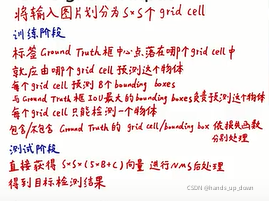 将输入图片划分为S×S个grid cell
训练阶段
标签Ground Truth框中心点落在哪个grid cell中
就应由哪个grid cell 预测这个物体
每个grid cell 预测B个bounding boxes
与Ground Truth框IOU最大的bounding boxes负责预测这个物体
每个grid cell只能检测一个物体
包含/不包含 Ground Truth框的 grid cell/bounding box 依损失函数
分别处理
测试阶段
直接获得 S×S×(5B+C)向量 进行NMS后处理
得到目标检测结果
CSDN @hands_up_down